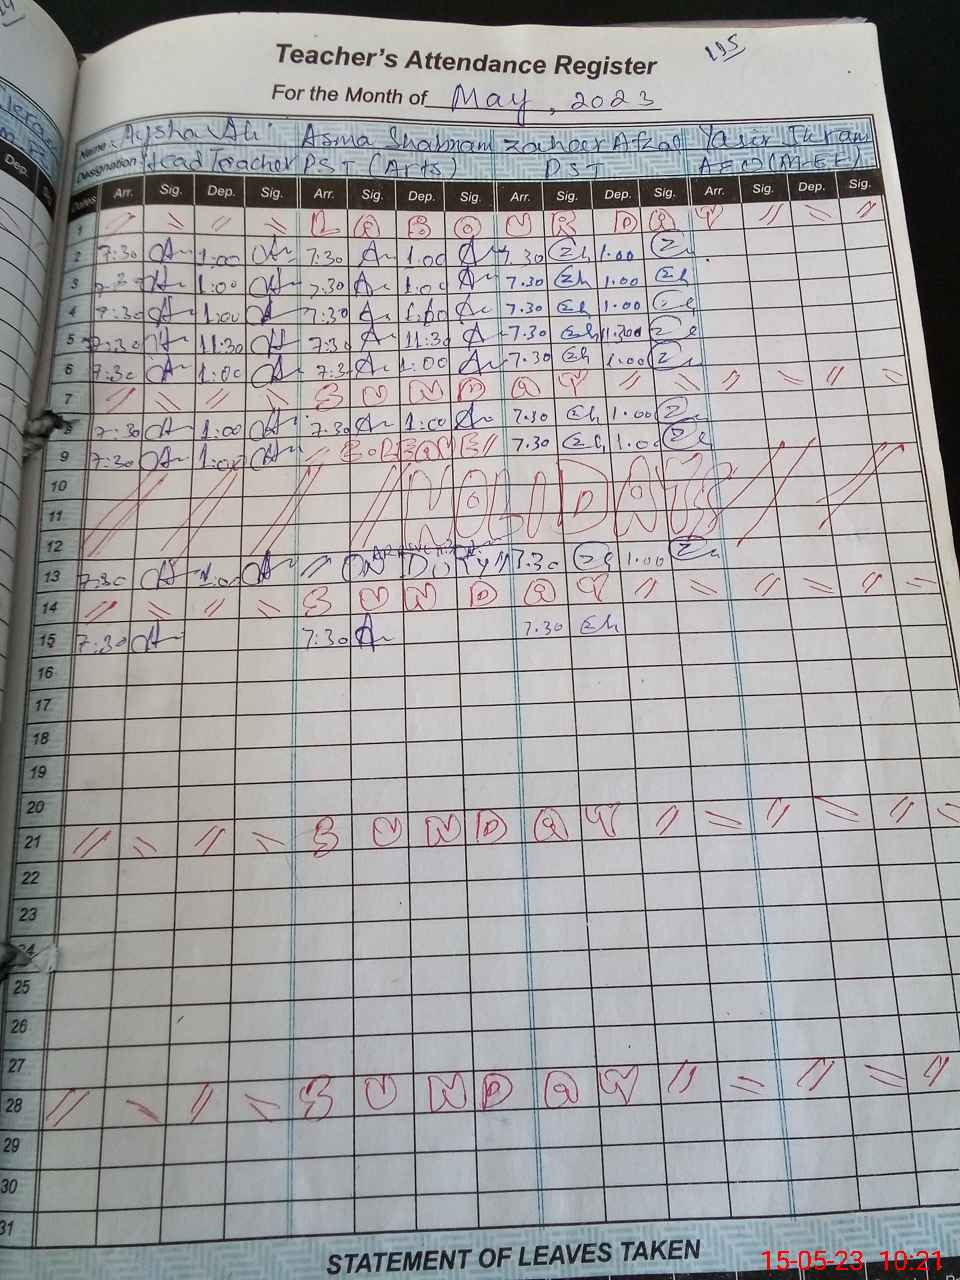 195
Teacher's Attendance Register
For the Month of May, 2023
Name: Aysha Ali Asma Shabnam Zaheer Afzal Yasir Ikram
Designation Head Teacher P.S.T (Arts) P.S.T AEO (M-EE)
Dates Arr. Sig. Dep. Sig. Arr. Sig. Dep. Sig. Arr. Sig. Dep. Sig. Arr. Sig. Dep. Sig.
1 L A B O U R D A Y
2 7:30 1:00 7:30 1:00 7.30 1.00
3 7:30 1:00 7:30 1:00 7.30 1.00
4 7:30 1:00 7:30 1:00 7.30 1.00
5 7:30 11:30 7:30 11:30 7.30 11.300
6 7:30 1:00 7:30 1:00 7.30 1.00
7 S U N D A Y
8 7:30 1:00 7:30 1:00 7.30 1.00
9 7:30 1:00 7.30 1.00
10
11 HOLIDAYS
12
13 7:30 1:00 ON Duty 7.30 1.00
14 S U N D A Y
15 7:30 7:30 7.30
16
17
18
19
20
21 S U N D A Y
22
23
24
25
26
27
28 S U N D A Y
29
30
31
STATEMENT OF LEAVES TAKEN
15-05-23 10:21
Dep.